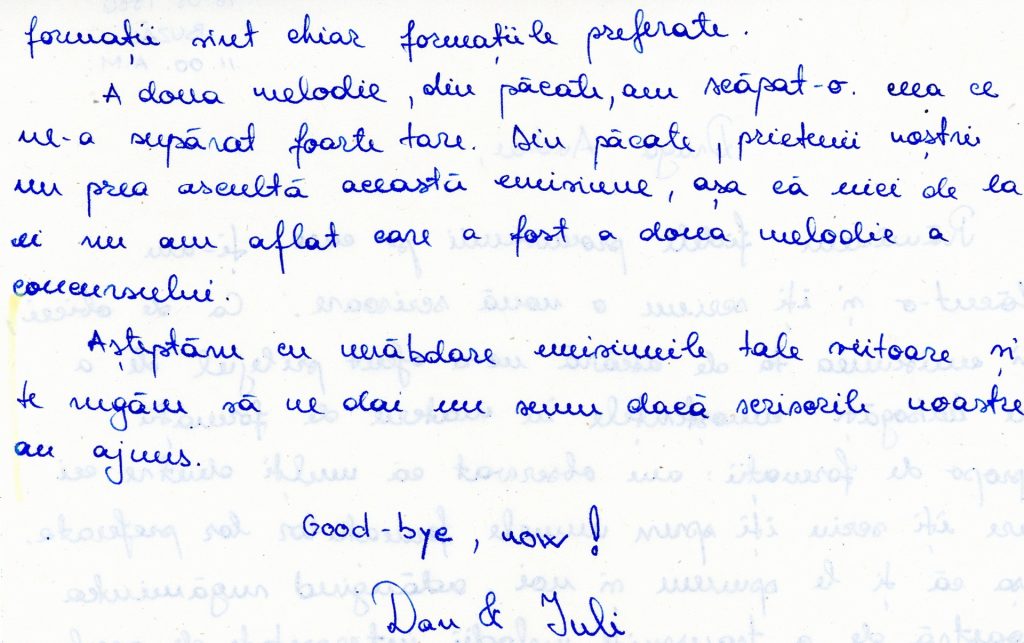 formații sînt chiar formațiile preferate.
A doua melodie, din păcate, am scăpat-o. ceea ce
ne-a supărat foarte tare. Din păcate, prietenii noștri
nu prea ascultă această emisiune, așa că nici de la
ei nu am aflat care a fost a doua melodie a
concursului.
Așteptăm cu nerăbdare emisiunile tale viitoare și
te rugăm să ne dai un semn dacă scrisorile noastre
au ajuns.
Good-bye, now!
Dan & Iuli